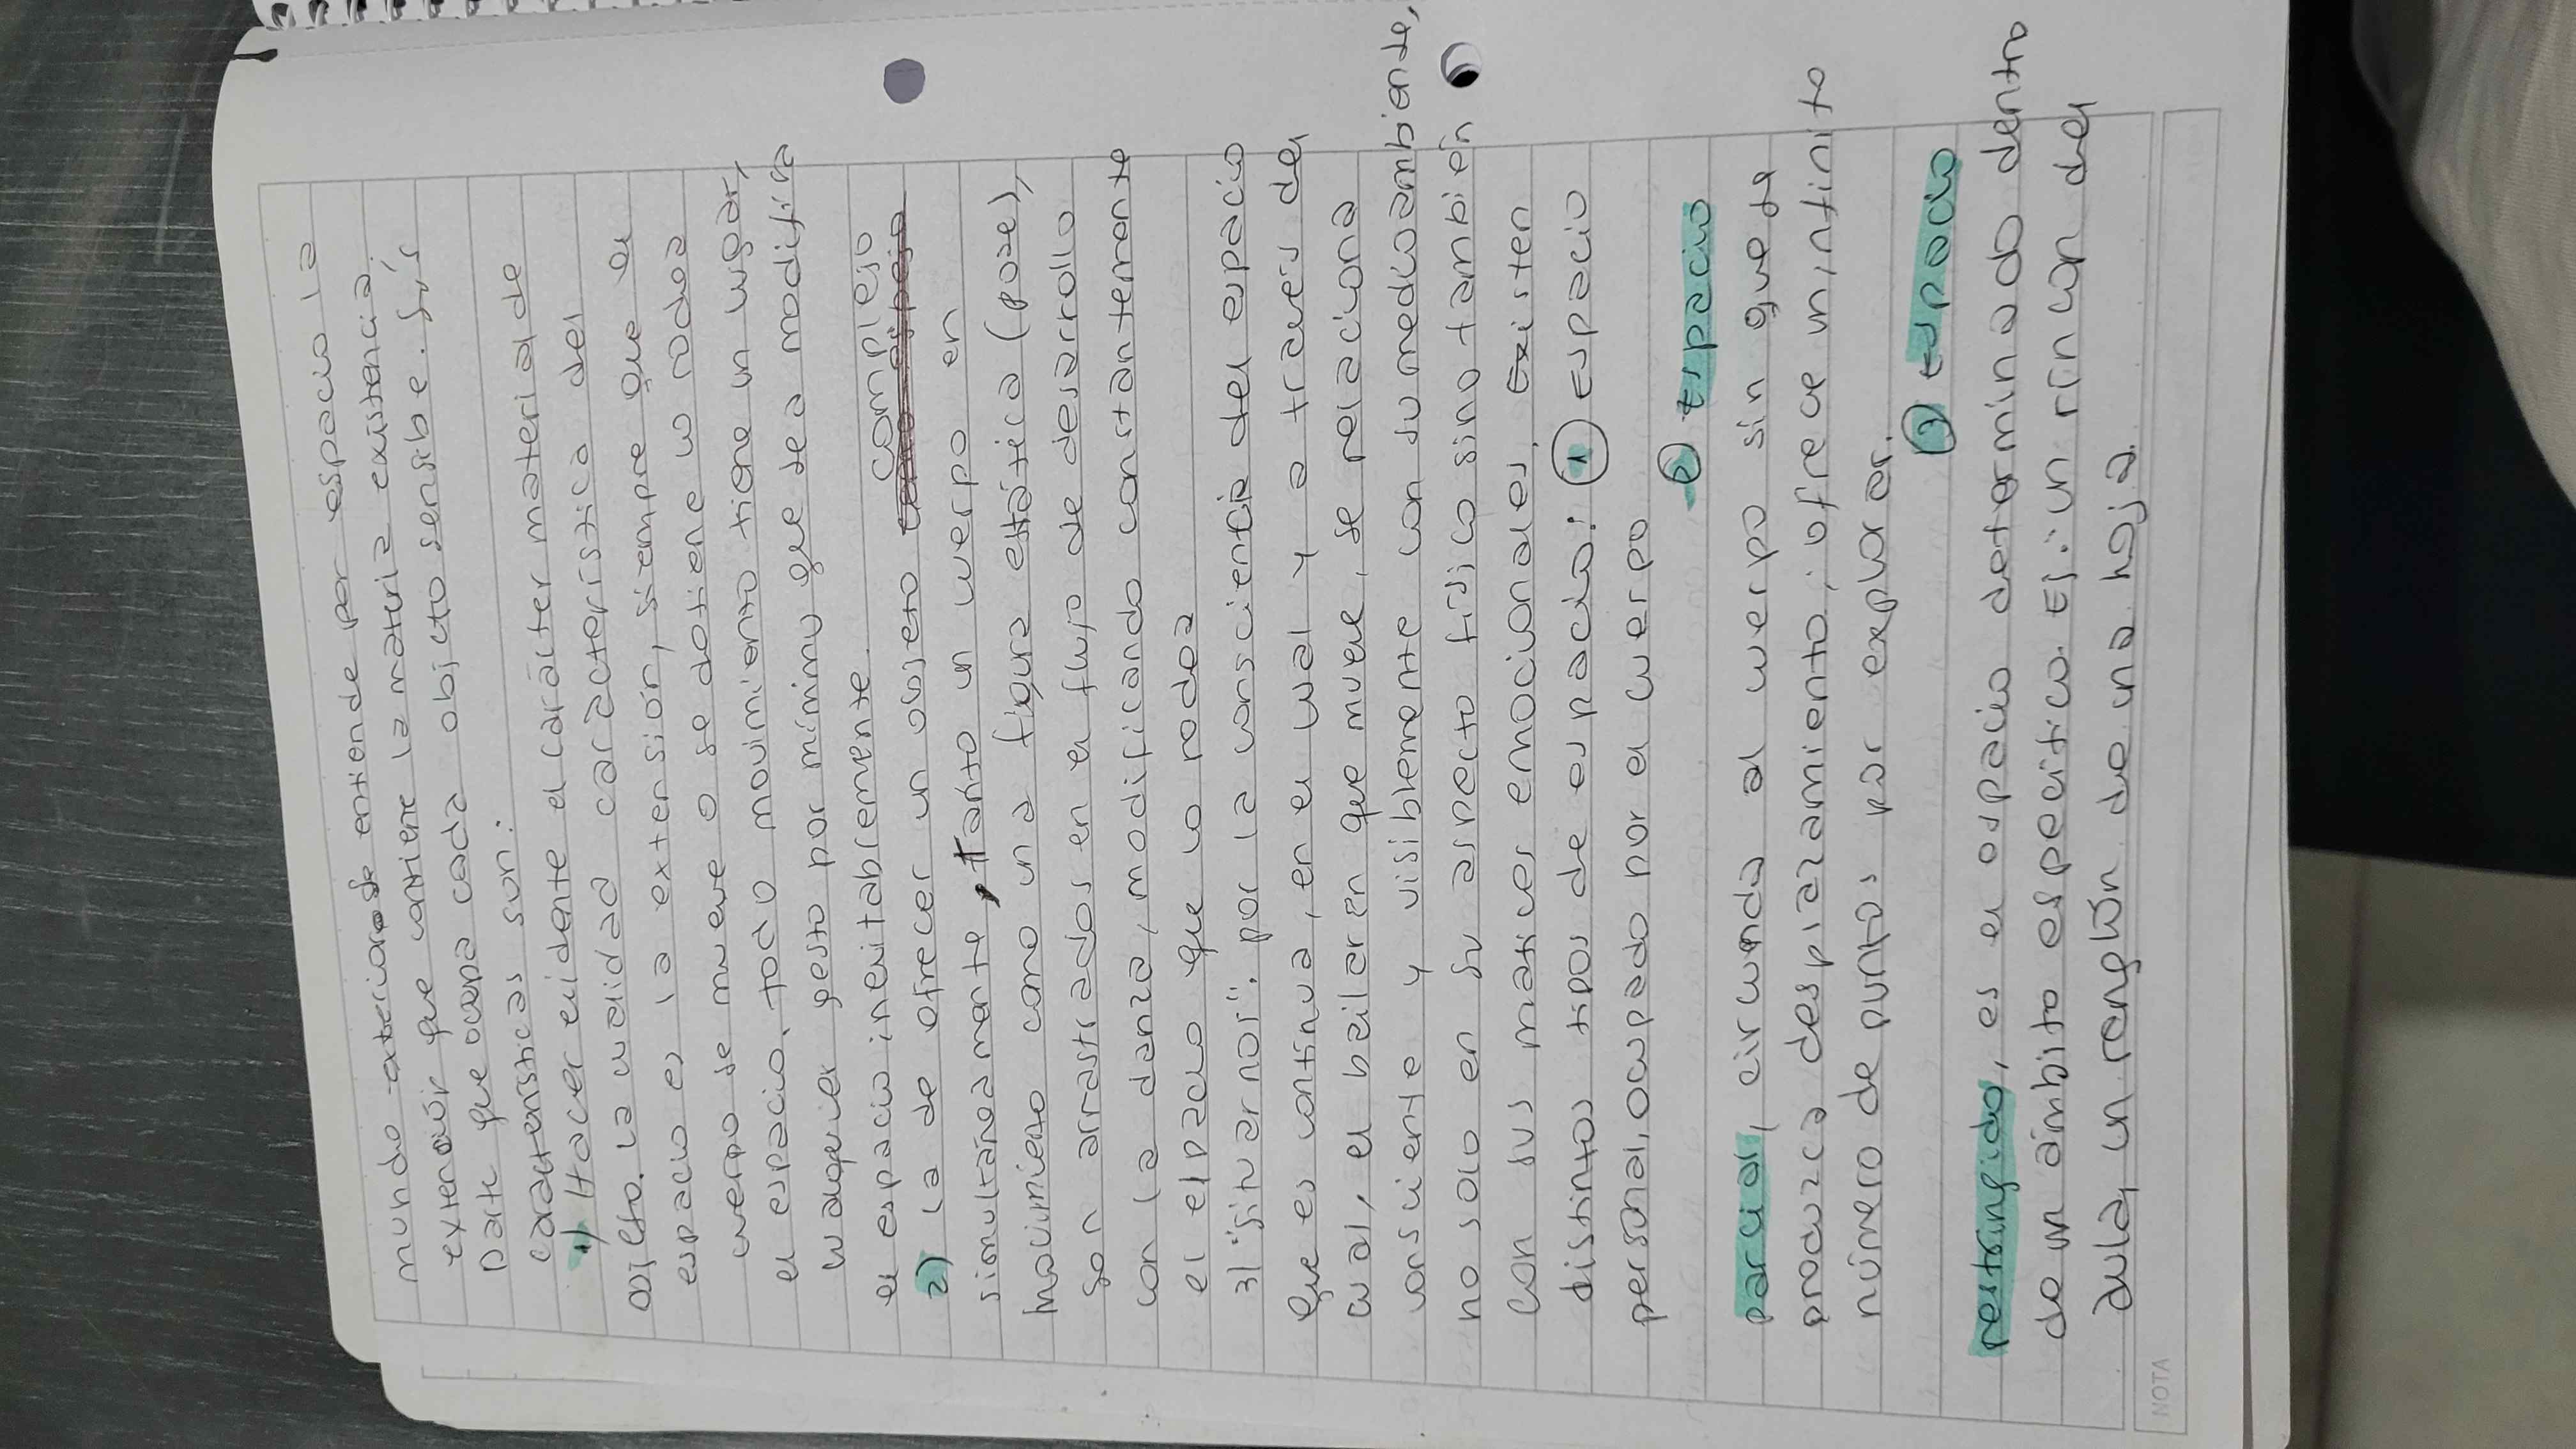 mundo exterior se entiende por espacio la
extensión que contiene la materia existencia.
Parte que ocupa cada objeto sensible. Sus
características son:
1) Hacer evidente el carácter material de
objeto. la cualidad característica del
espacio es la extensión, siempre que el
cuerpo se mueve o se detiene lo rodea
el espacio. todo movimiento tiene un lugar,
cualquier gesto por mínimo que sea modifica
el espacio inevitablemente.
2) la de ofrecer un objeto complejo
simultáneamente, tanto un cuerpo en
movimiento como una figura estática (pose),
son arrastrados en el flujo de desarrollo
con la danza, modificando constantemente
el espacio que lo rodea
3) "situarnos". por la consciencia del espacio
que es continua, en el cual y a través del
cual, el bailarín que mueve, se relaciona
consciente y visiblemente con su medio ambiente,
no solo en su aspecto físico sino también
con sus matices emocionales. Existen
distintos tipos de espacio: 1 espacio
personal, ocupado por el cuerpo
2 Espacio
parcial, circunda al cuerpo sin que se
produzca desplazamiento; ofrece un infinito
número de puntos por explorar.
3 Espacio
restringido, es el espacio determinado dentro
de un ámbito específico. Ej: un rincón del
aula, un renglón de una hoja.
NOTA